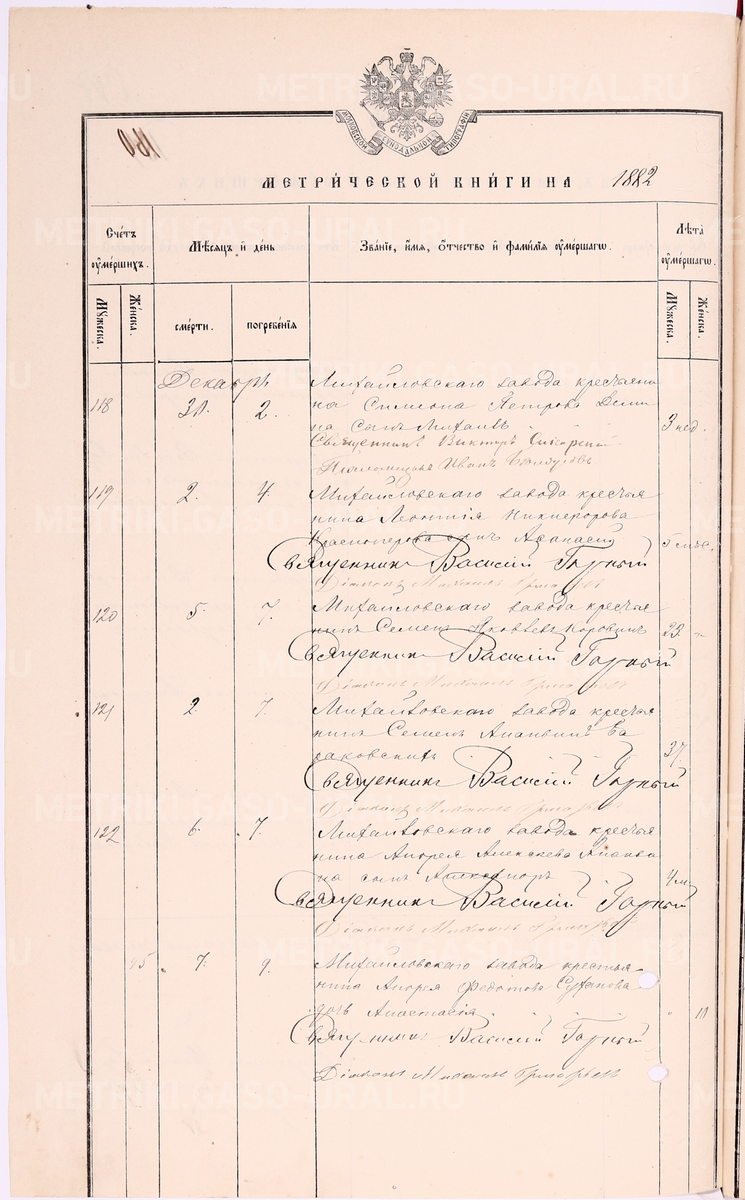 160
МОСКОВСКОЙ СѴНОДАЛЬНОЙ ТИПОГРАФІИ
МЕТРИ́ЧЕСКОЙ КНИ́ГИ НА 1882
Сче́тъ ᲂумéршихъ.
Мѣ́сяцъ и҆ де́нь
Зва́нїе, и҆́мя, ѻ҆́тчество и҆ фами́лїя ᲂумéршагѡ.
Лѣ́та ᲂумéршагѡ.
Мꙋ́жеска.
Же́нска.
сме́рти.
погребе́нїя
Мꙋ́жеска.
Же́нска.
Декабрь
Михайловскаго завода крестьяни
118 30. 2. на Симеона Петрова
на сынъ 3 нед.
Священникъ Викторъ
Псаломщикъ Иванъ
119 2. 4. Михайловскаго завода крестья
нина Леонтія Никифорова
Красноперова сынъ Афанасій 5 мѣс.
Священникъ Василій Горный
Діаконъ Михаилъ Григорьевъ
120 5. 7. Михайловскаго завода крестья
нинъ Семенъ Яковлевъ 22
Священникъ Василій Горный
Діаконъ Михаилъ Григорьевъ
121 2. 7. Михайловскаго завода крестья
нинъ Семенъ Ананьинъ Ба
37
Священникъ Василій Горный
Діаконъ Михаилъ Григорьевъ
122 6. 7. Михайловскаго завода крестья
нина Андрея Алексѣева
на сынъ Александръ 4 м
Священникъ Василій Горный
Діаконъ Михаилъ Григорьевъ
95 7. 9. Михайловскаго завода крестья
нина Андрея Федотова Суханова
дочь Анастасія 11
Священникъ Василій Горный
Діаконъ Михаилъ Григорьевъ
METRIKI.GASO-URAL.RU